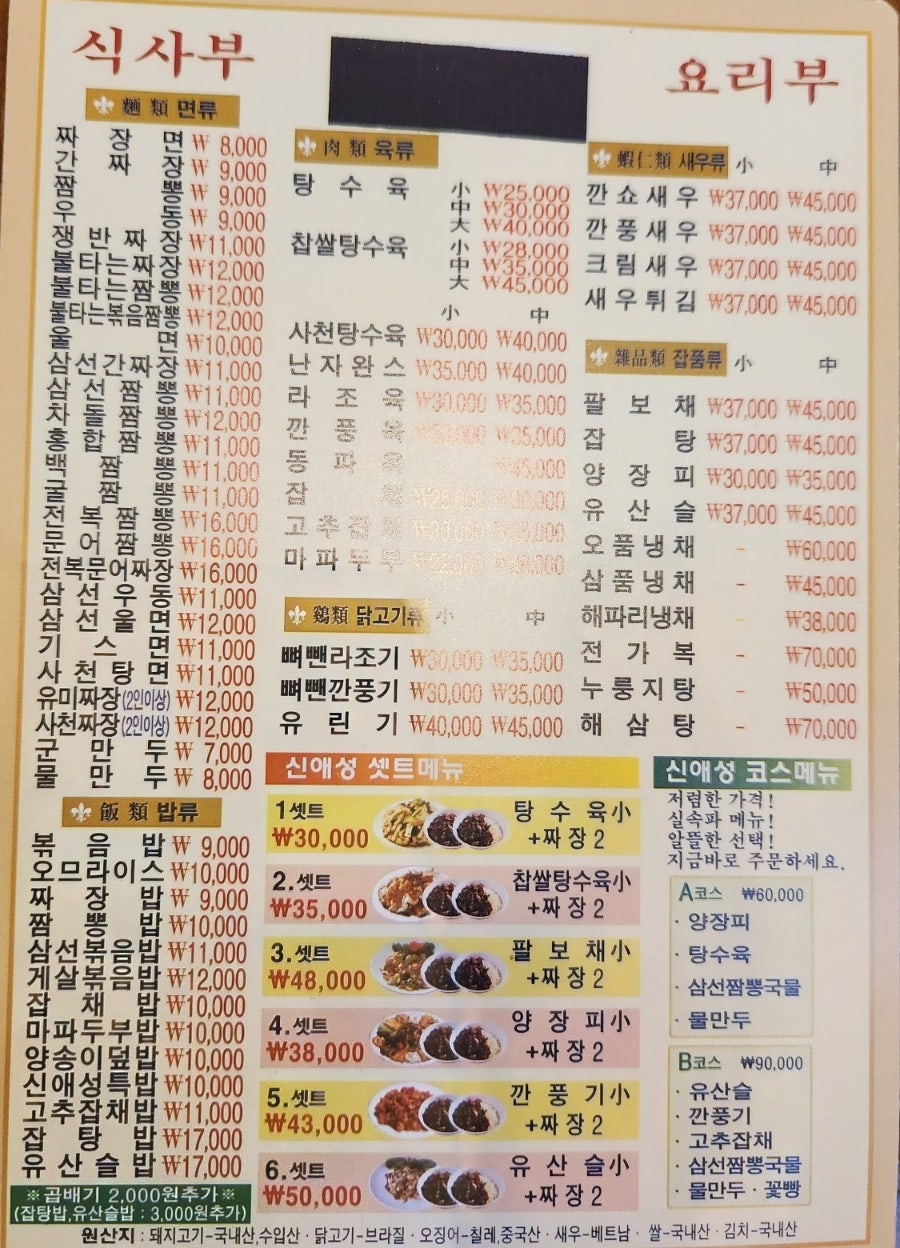 식사부
麵類 면류
짜장면 ₩ 8,000
간짜장 ₩ 9,000
짬뽕 ₩ 9,000
우동 ₩ 9,000
쟁반짜장 ₩11,000
불타는짜장 ₩12,000
불타는짬뽕 ₩12,000
불타는볶음짬뽕 ₩12,000
울면 ₩10,000
삼선간짜장 ₩11,000
삼선짬뽕 ₩11,000
차돌짬뽕 ₩12,000
홍합짬뽕 ₩11,000
백짬뽕 ₩11,000
굴짬뽕 ₩11,000
전복짬뽕 ₩16,000
문어짬뽕 ₩16,000
전복문어짜장 ₩16,000
삼선우동 ₩11,000
삼선울면 ₩12,000
기스면 ₩11,000
사천탕면 ₩11,000
유미짜장(2인이상) ₩12,000
사천짜장(2인이상) ₩12,000
군만두 ₩ 7,000
물만두 ₩ 8,000
飯類 밥류
볶음밥 ₩ 9,000
오므라이스 ₩10,000
짜장밥 ₩ 9,000
짬뽕밥 ₩10,000
삼선볶음밥 ₩11,000
게살볶음밥 ₩12,000
잡채밥 ₩10,000
마파두부밥 ₩10,000
양송이덮밥 ₩10,000
신애성특밥 ₩10,000
고추잡채밥 ₩11,000
잡탕밥 ₩17,000
유산슬밥 ₩17,000
※곱배기 2,000원추가※
(잡탕밥,유산슬밥 : 3,000원추가)
요리부
肉類 육류
탕수육 小 ₩25,000
中 ₩30,000
大 ₩40,000
찹쌀탕수육 小 ₩28,000
中 ₩35,000
大 ₩45,000
小 中
사천탕수육 ₩30,000 ₩40,000
난자완스 ₩35,000 ₩40,000
라조육 ₩30,000 ₩35,000
깐풍육 ₩35,000
동파육 ₩45,000
잡채
고추잡채
마파두부
鷄類 닭고기류 小 中
뼈뺀라조기 ₩30,000 ₩35,000
뼈뺀깐풍기 ₩30,000 ₩35,000
유린기 ₩40,000 ₩45,000
蝦仁類 새우류 小 中
깐쇼새우 ₩37,000 ₩45,000
깐풍새우 ₩37,000 ₩45,000
크림새우 ₩37,000 ₩45,000
새우튀김 ₩37,000 ₩45,000
雜品類 잡품류 小 中
팔보채 ₩37,000 ₩45,000
잡탕 ₩37,000 ₩45,000
양장피 ₩30,000 ₩35,000
유산슬 ₩37,000 ₩45,000
오품냉채 - ₩60,000
삼품냉채 - ₩45,000
해파리냉채 - ₩38,000
전가복 - ₩70,000
누룽지탕 - ₩50,000
해삼탕 - ₩70,000
신애성 셋트메뉴
1셋트 ₩30,000 탕수육小 +짜장2
2.셋트 ₩35,000 찹쌀탕수육小 +짜장2
3.셋트 ₩48,000 팔보채小 +짜장2
4.셋트 ₩38,000 양장피小 +짜장2
5.셋트 ₩43,000 깐풍기小 +짜장2
6.셋트 ₩50,000 유산슬小 +짜장2
신애성 코스메뉴
저렴한 가격!
실속파 메뉴!
알뜰한 선택!
지금바로 주문하세요.
A코스 ₩60,000
· 양장피
· 탕수육
· 삼선짬뽕국물
· 물만두
B코스 ₩90,000
· 유산슬
· 깐풍기
· 고추잡채
· 삼선짬뽕국물
· 물만두 · 꽃빵
원산지 : 돼지고기-국내산,수입산 · 닭고기-브라질 · 오징어-칠레,중국산 · 새우-베트남 · 쌀-국내산 · 김치-국내산